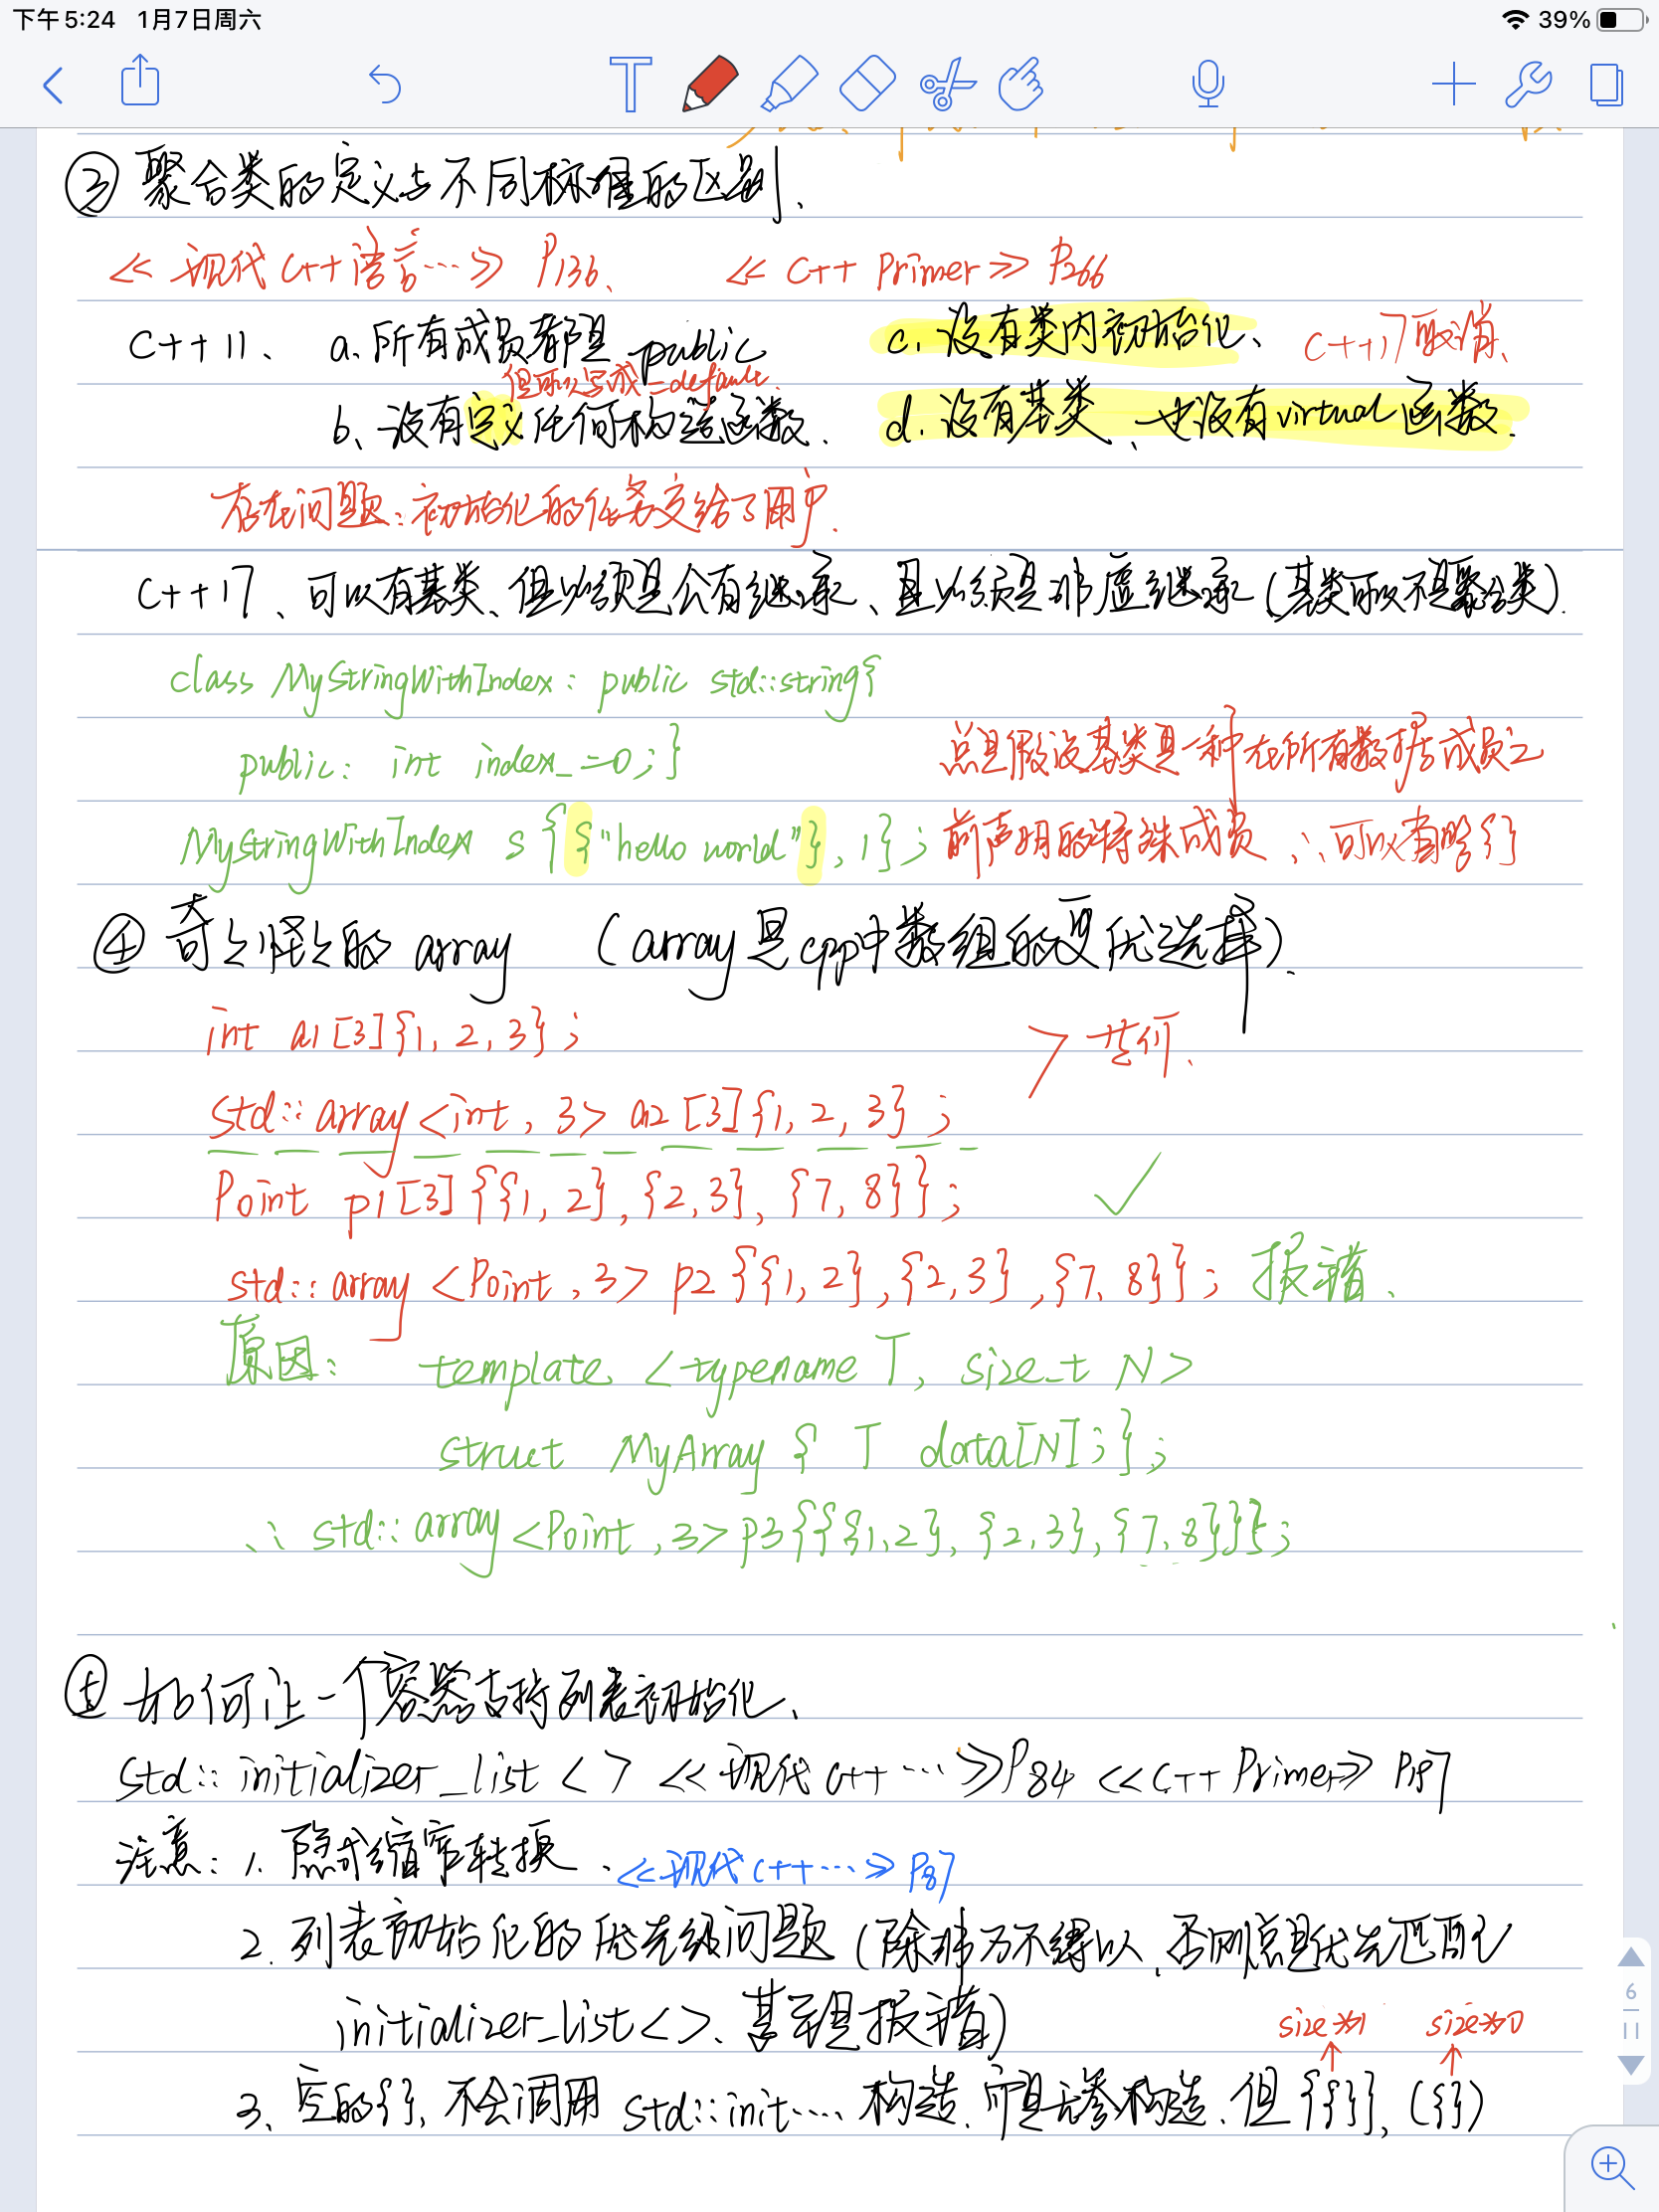 下午5:24 1月7日周六
39%
③ 聚合类的定义与不同标准的区别、
《现代C++语言…》 P136、 《C++ Primer》 P266
C++11、 a. 所有成员都是 public c. 没有类内初始化、 C++17取消、
但可以写成=default.
b、没有定义任何构造函数. d. 没有基类、也没有virtual函数.
存在问题:初始化的任务交给了用户.
C++17、可以有基类、但必须是公有继承、且必须是非虚继承(基类可以不是聚合类).
class MyStringWithIndex: public std::string{
public: int index_=0;} 总是假设基类是一种在所有数据成员之
MyStringWithIndex s{{"hello world"}, 1}; 前声明的特殊成员 ∴可以省略{}
④ 奇奇怪怪的 array (array是cpp中数组的更优选择).
int a1[3]{1, 2, 3};
> 等价.
std::array<int, 3> a2[3]{1, 2, 3};
Point p1[3]{{1, 2}, {2, 3}, {7, 8}}; ✓
std::array<Point, 3> p2{{1, 2}, {2, 3}, {7, 8}}; 报错.
原因: template <typename T, size_t N>
struct MyArray { T data[N]; };
∴ std::array<Point, 3> p3{{{1,2}, {2,3}, {7,8}}};
⑤ 如何让一个容器支持列表初始化、
std::initializer_list< > 《现代C++…》P84 《C++ Primer》 P197
注意: 1. 隐式缩窄转换、《现代C++…》 P87
2. 列表初始化的优先级问题(除非万不得以,否则总是优先匹配
initializer_list<>、甚至是报错)
size为1 size为0
3、空的{}, 不会调用 std::init…. 构造、而是无参构造、但{{}}, ({})
6
11